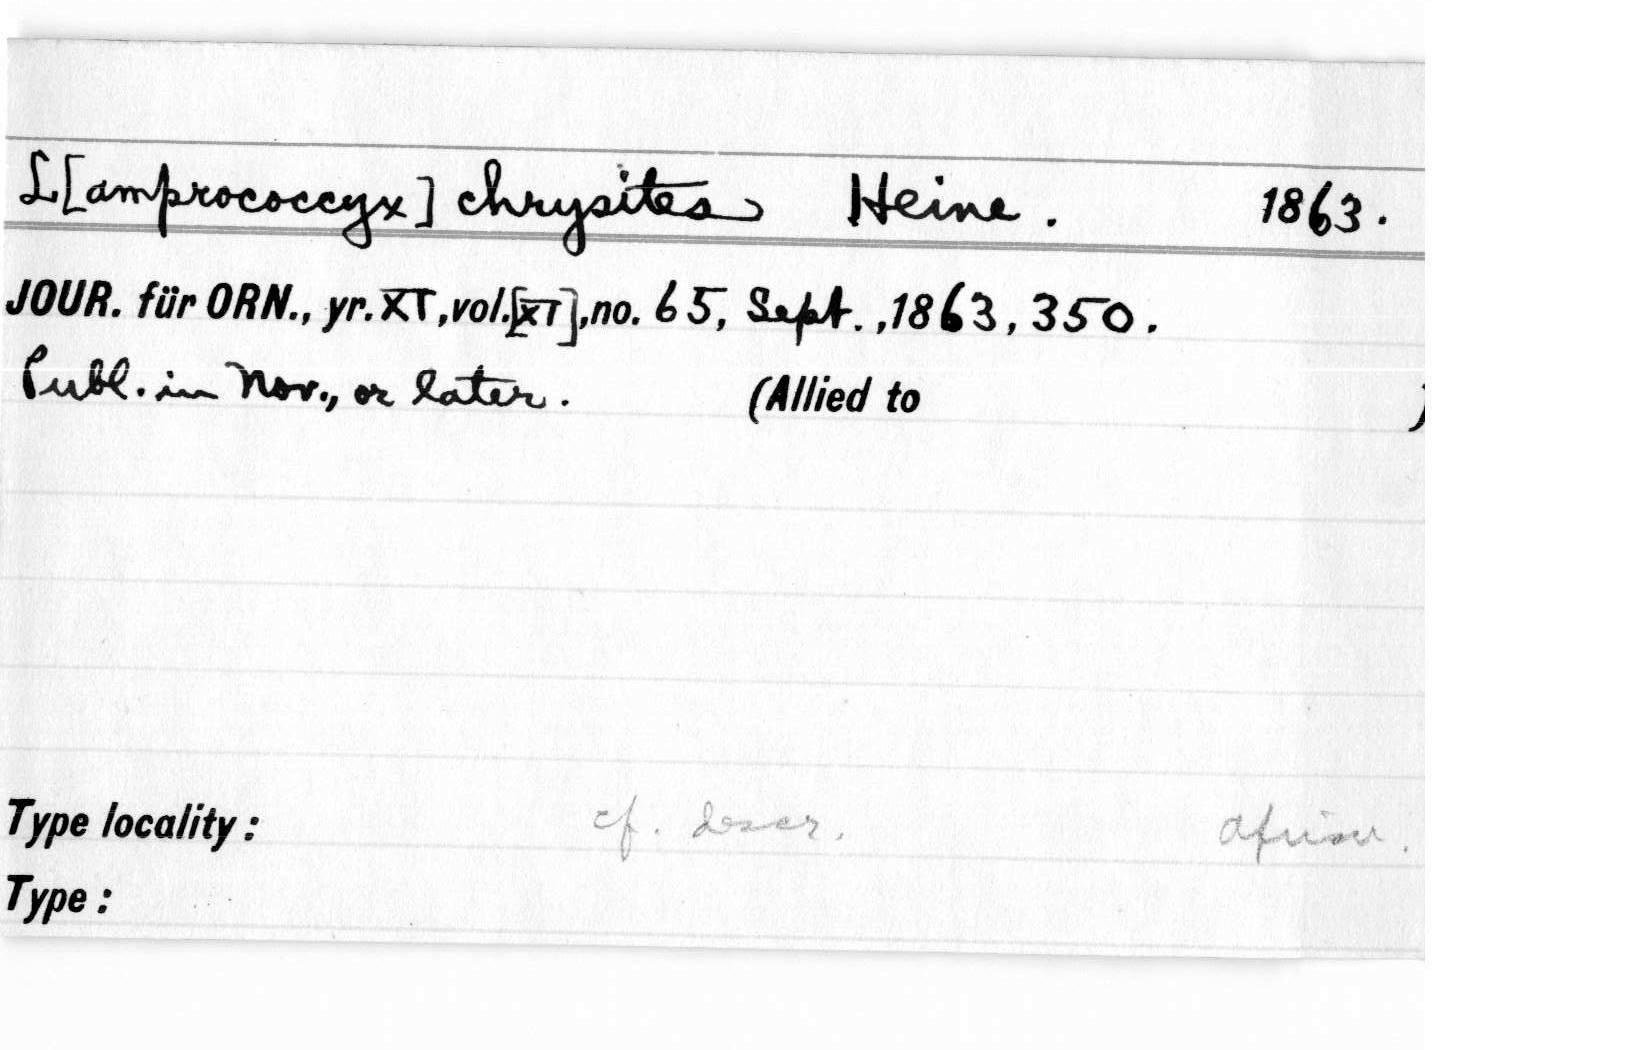 L[amprococcyx] chrysites Heine. 1863.
JOUR. für ORN., yr. XI, vol. [XI], no. 65, Sept., 1863, 350.
Publ. in Nov., or later. (Allied to )
Type locality: cf. descr.
Type: